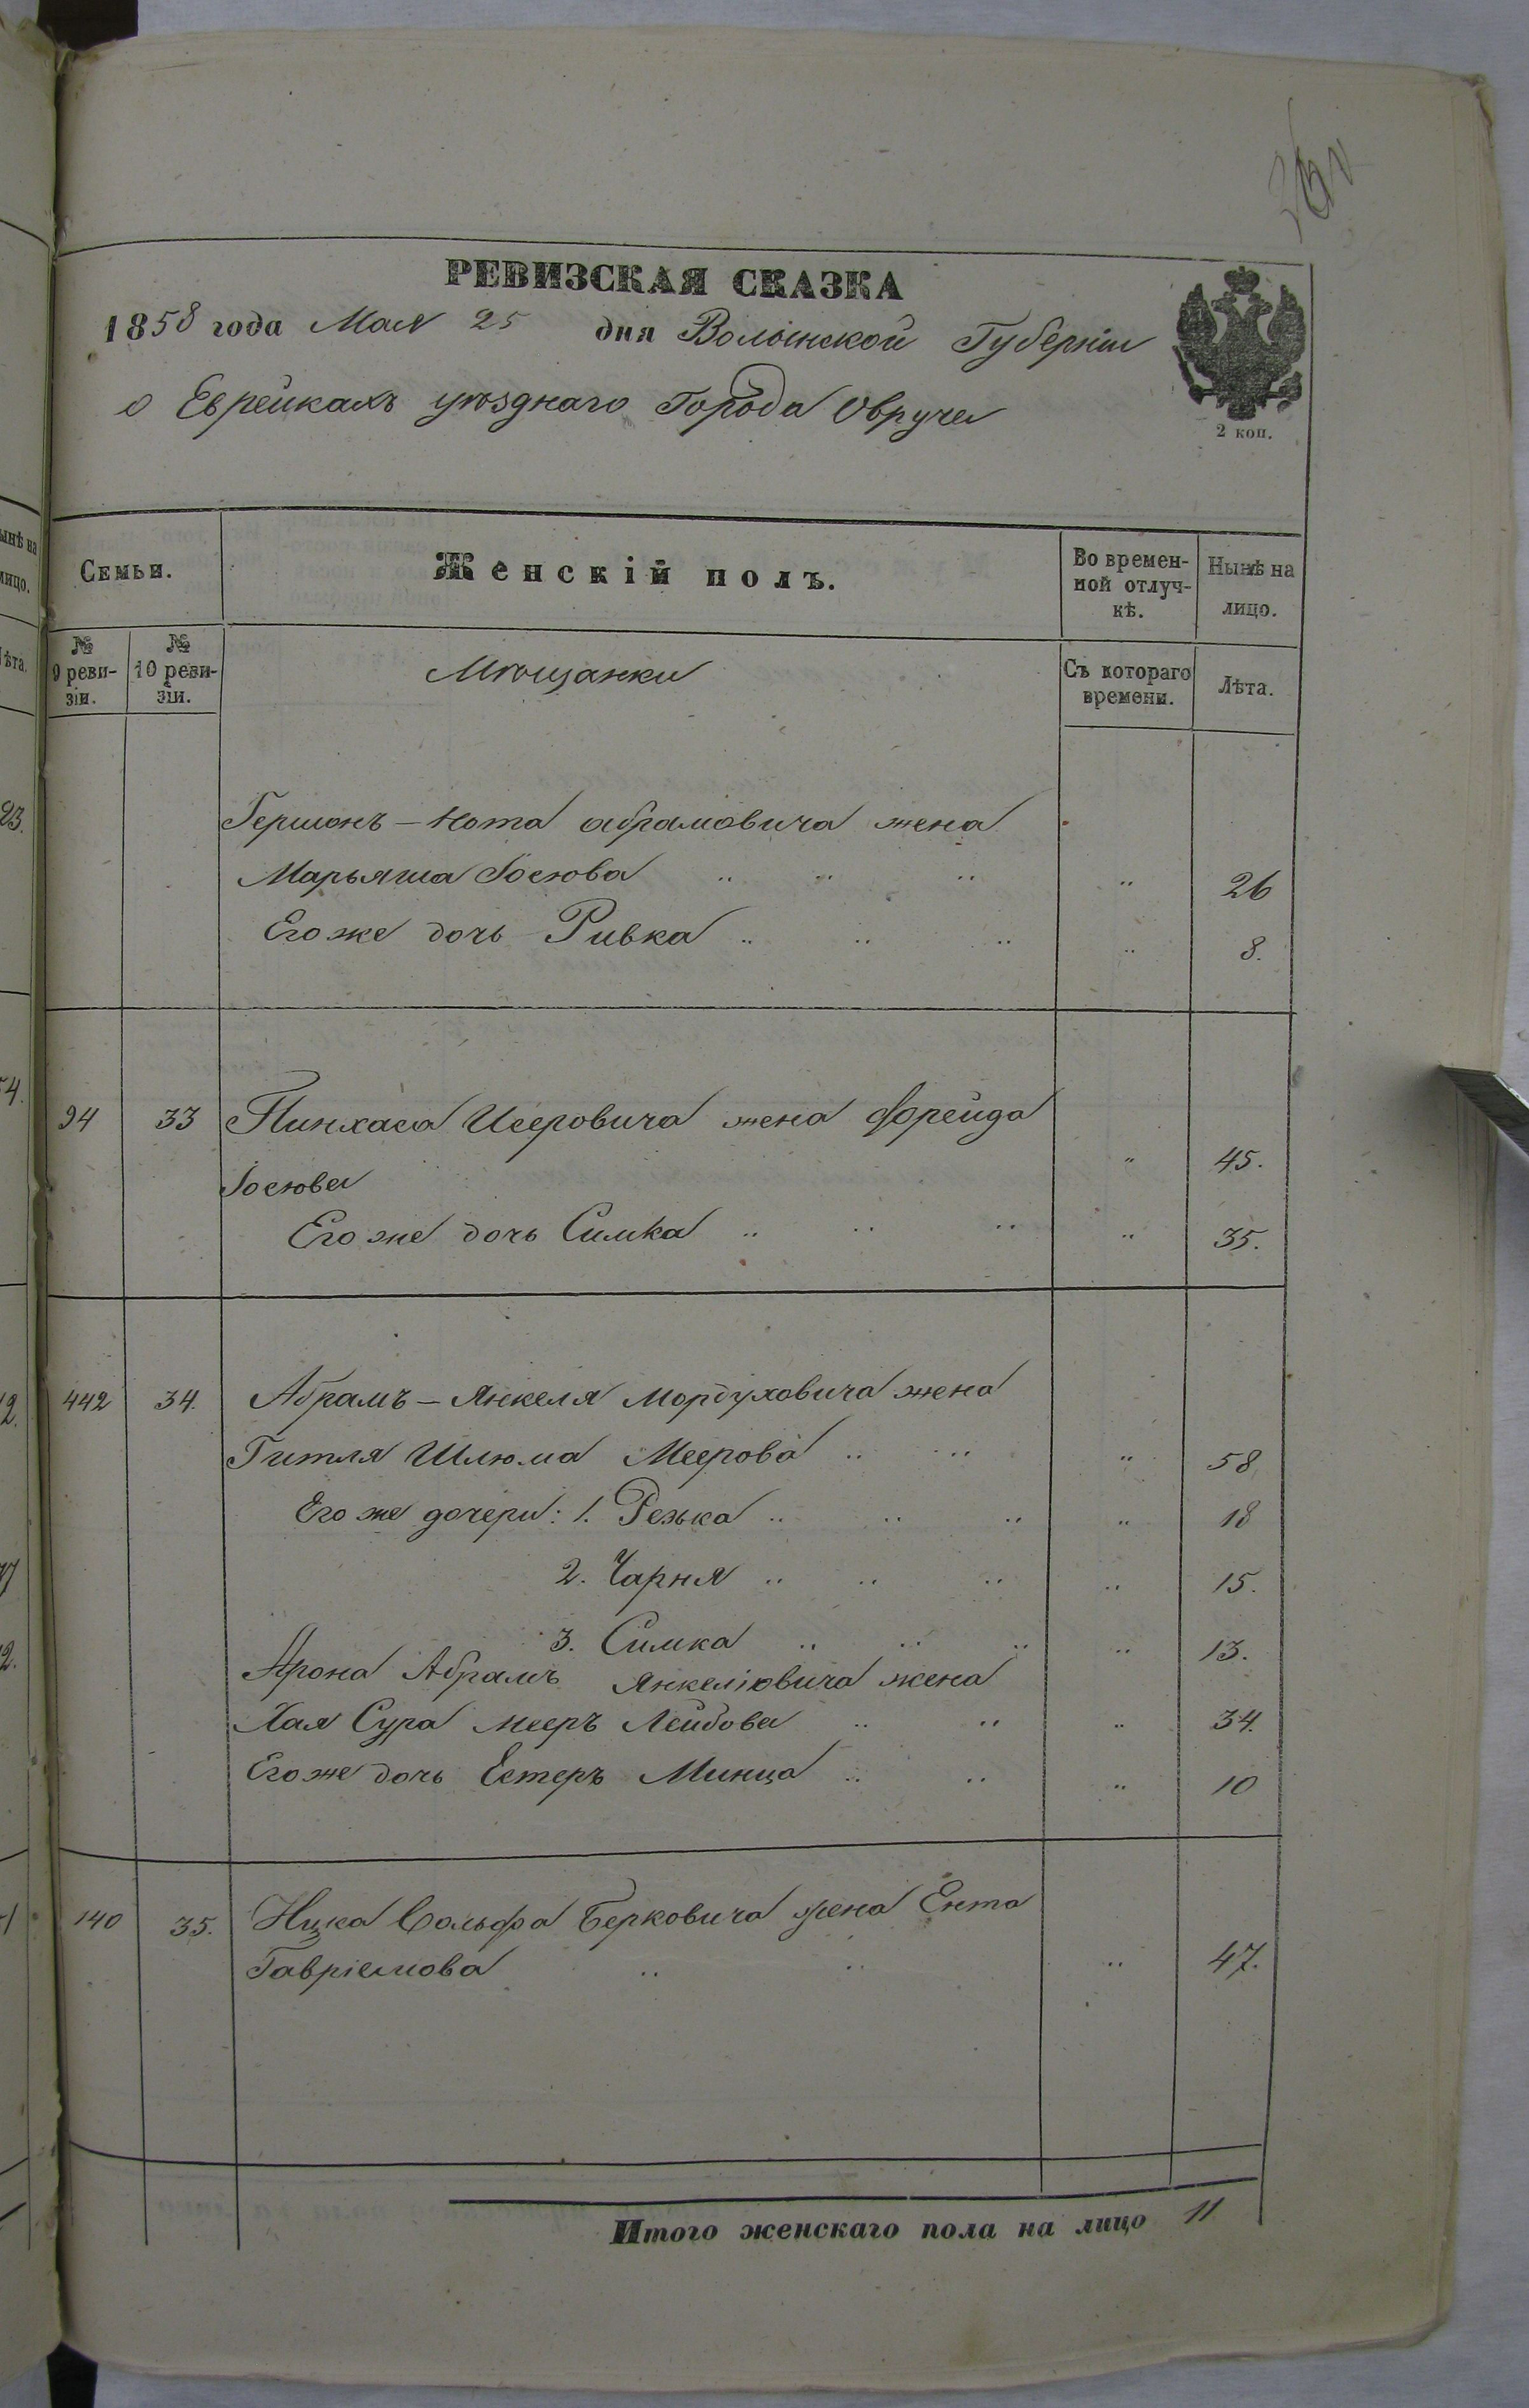 РЕВИЗСКАЯ СКАЗКА
1858 года Мая 25 дня Волынской Губерніи
о Еврейкахъ уѣзднаго города Овруча
2 коп.
Семьи. Женскій полъ. Во времен-ной отлуч-кѣ. Нынѣ на лицо.
№ 9 реви-зіи. № 10 реви-зіи. Мѣщанки Съ котораго времени. Лѣта.
Гершонъ-Нота Абрамовича жена
Марьяша Іосіова " 26
Его же дочь Ривка " 8.
94 33 Пинхаса Исеровича жена Фрейда
Іосіова " 45.
Его же дочь Симка " 35.
442 34. Абрамъ-Янкеля Мордуховича жена
Гитля Шлюма Меерова " 58
Его же дочери: 1. Резька " 18
2. Чарня " 15.
3. Симка " 13.
Арона Абрамъ Янкеліовича жена
Хая Сура Мееръ Лейбова " 34.
Его же дочь Естеръ Минца " 10
140 35. Ицка Вольфа Берковича жена Ента
Гавріелова " 47.
Итого женскаго пола на лицо 11